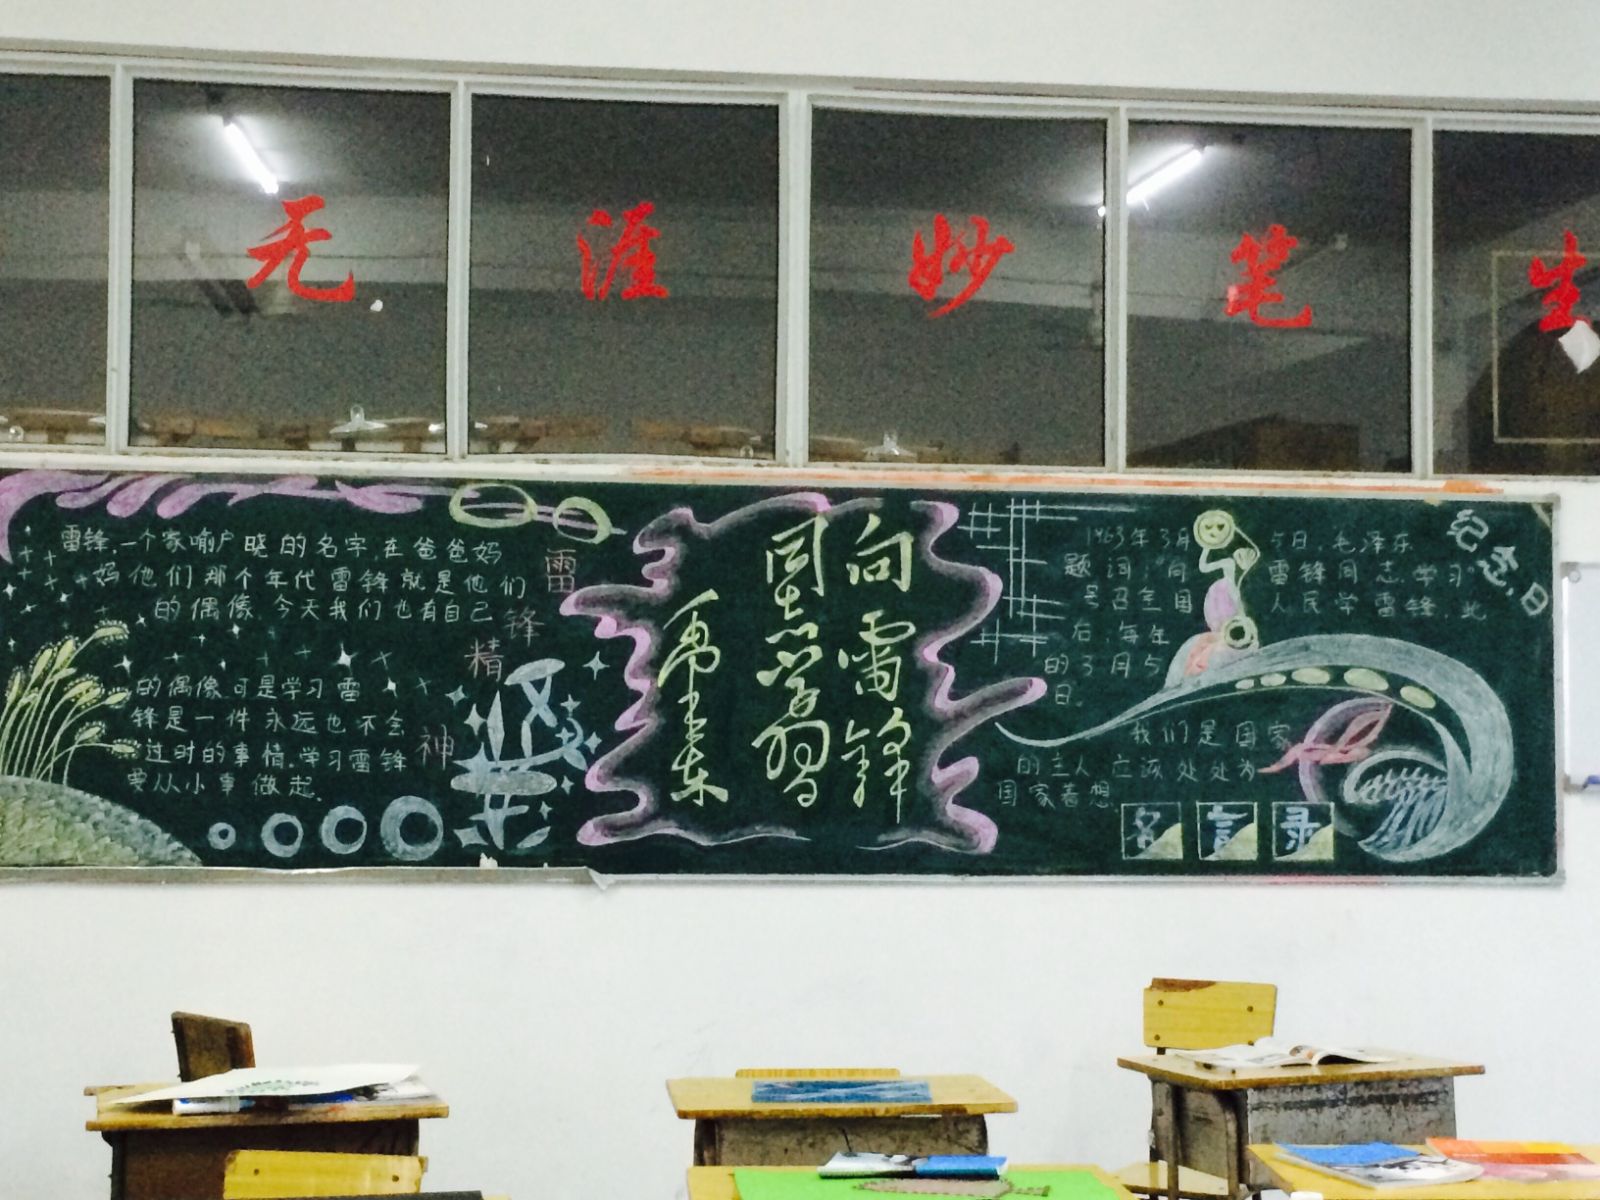 无涯妙笔生
雷锋,一个家喻户晓的名字,在爸爸妈
妈他们那个年代雷锋就是他们
的偶像.今天我们也有自己
的偶像.可是学习雷
锋是一件永远也不会
过时的事情.学习雷锋
要从小事做起.
雷
锋
精
神
向雷锋
同志学习
毛泽东
纪念日
1963年3月5日,毛泽东
题词:"向雷锋同志学习"
号召全国人民学雷锋,此
后,每年
的3月5
日。
我们是国家
的主人应该处处为
国家着想.
名言录